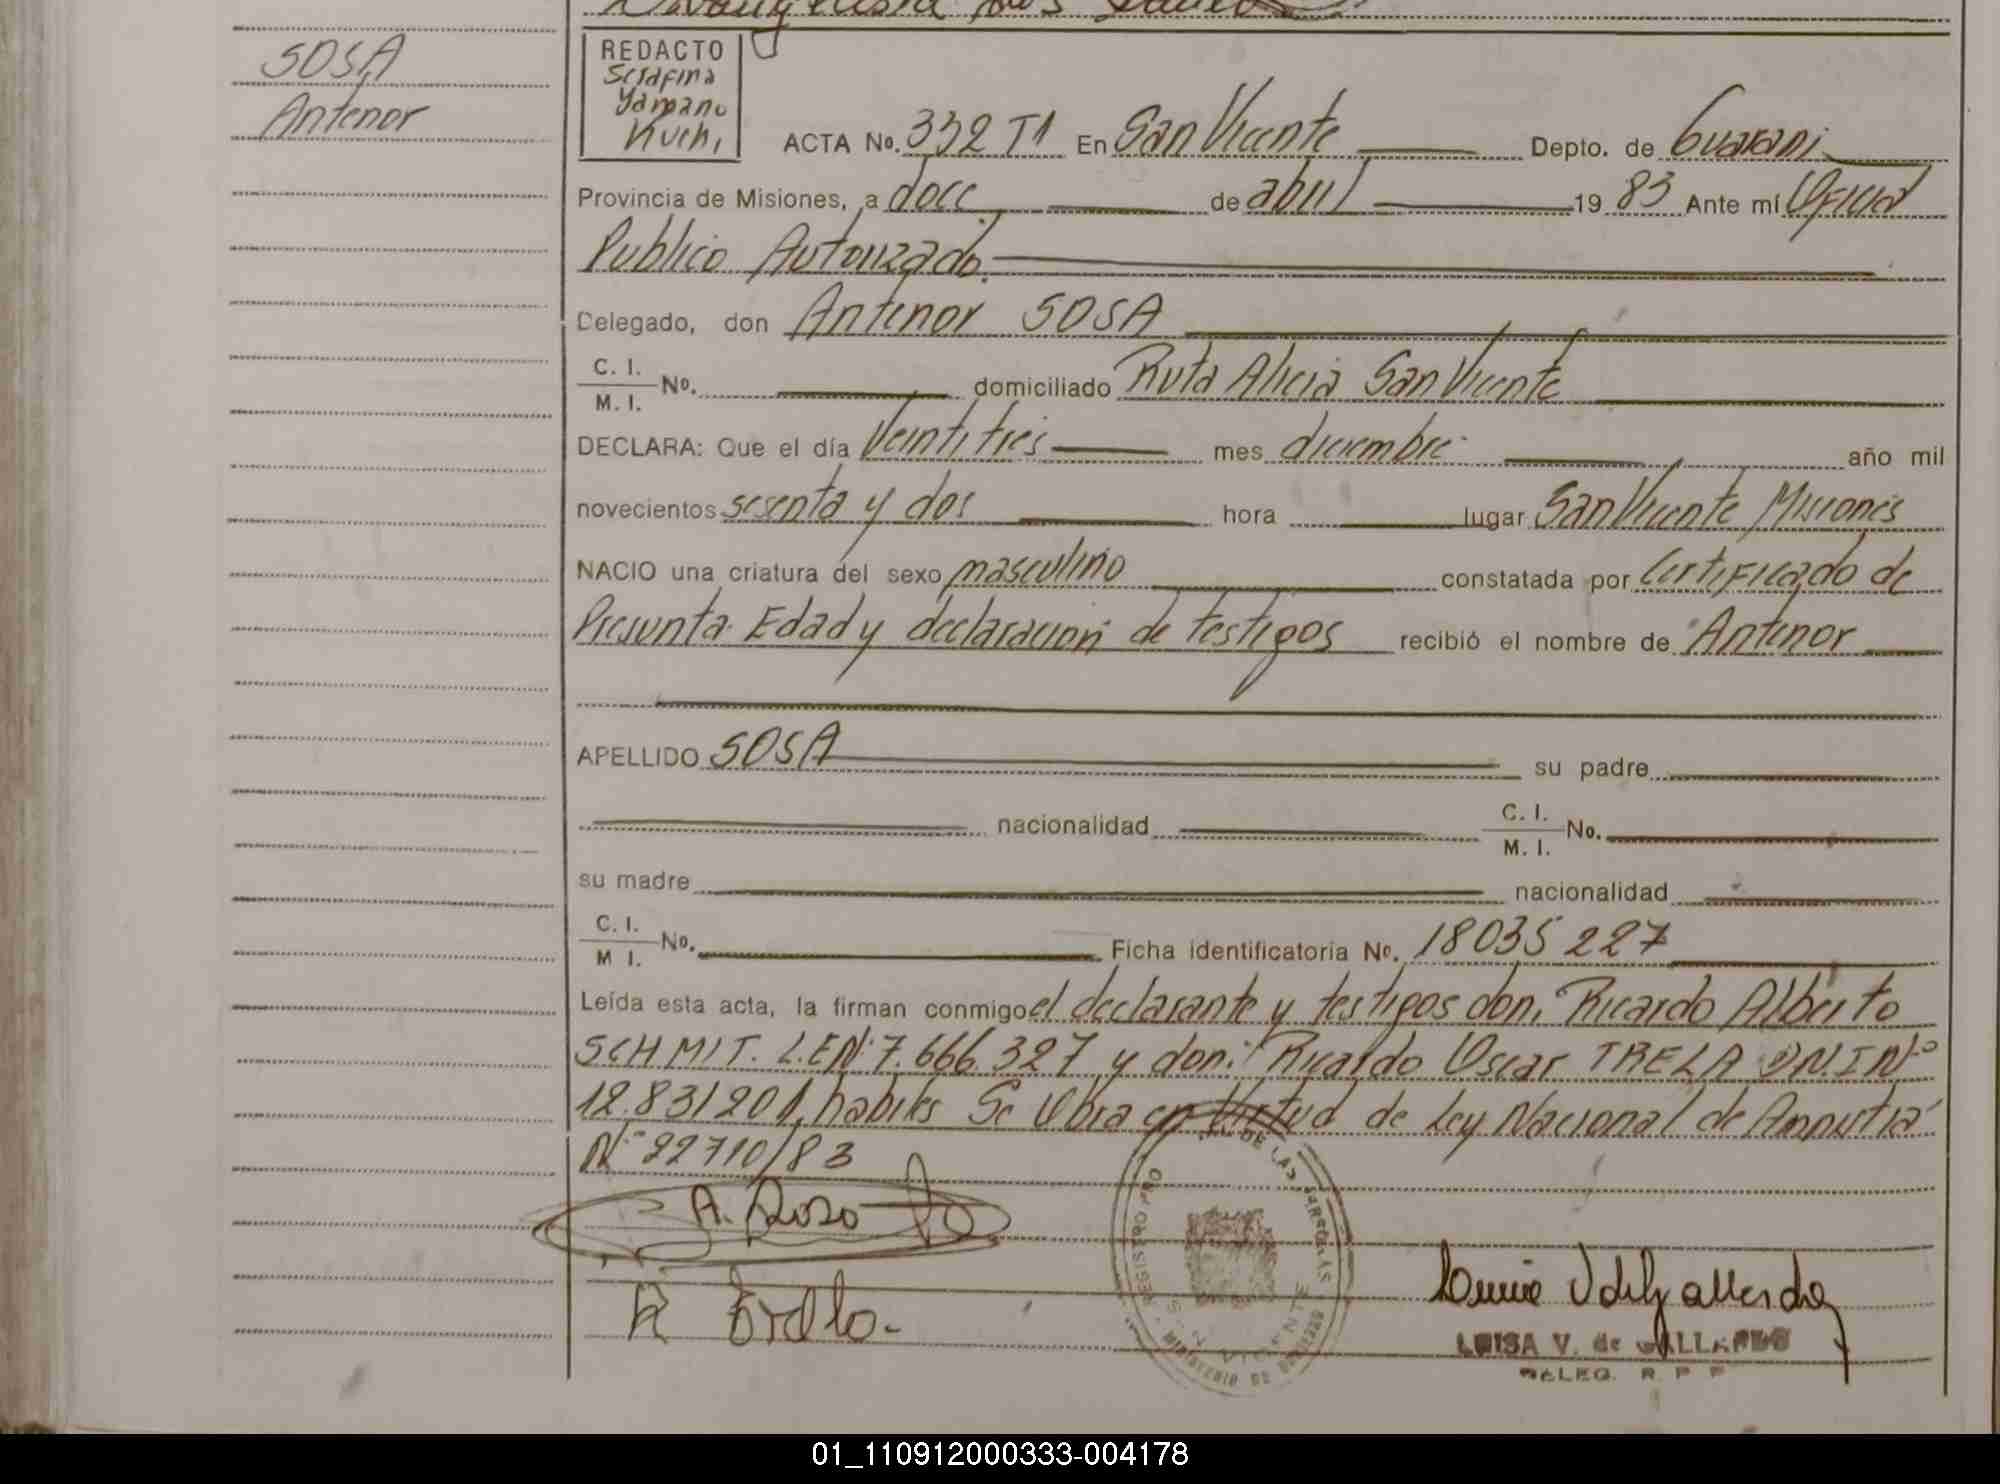 SOSA
Antenor
REDACTO
Serafina
Yamanu
Kuchi
ACTA No. 332 T1 En San Vicente Depto. de Guarani
Provincia de Misiones, a doce de abril 1983 Ante mí Oficial
Publico Autorizado.
Delegado, don Antenor SOSA
C. I.
M. I. No. domiciliado Ruta Alicia San Vicente
DECLARA: Que el día Veintitrés mes diciembre año mil
novecientos sesenta y dos hora lugar San Vicente Misiones
NACIO una criatura del sexo masculino constatada por Certificado de
Presunta Edad y declaracion de testigos recibió el nombre de Antenor
APELLIDO SOSA su padre
nacionalidad C. I.
M. I. No.
su madre nacionalidad
C. I.
M I. No. Ficha identificatoria No. 18035227
Leída esta acta, la firman conmigo el declarante y testigos don: Ricardo Alberto
SCHMIT. L.E.N: 7.666.327 y don: Ricardo Oscar TRELA D.N.I Nº
12.831201, habiles Se Obra en Virtud de Ley Nacional de Amnistia
Nº 22710/83
R Trela.
LUISA V. de GALLARDO
DELEG. R. P. P
01_110912000333-004178